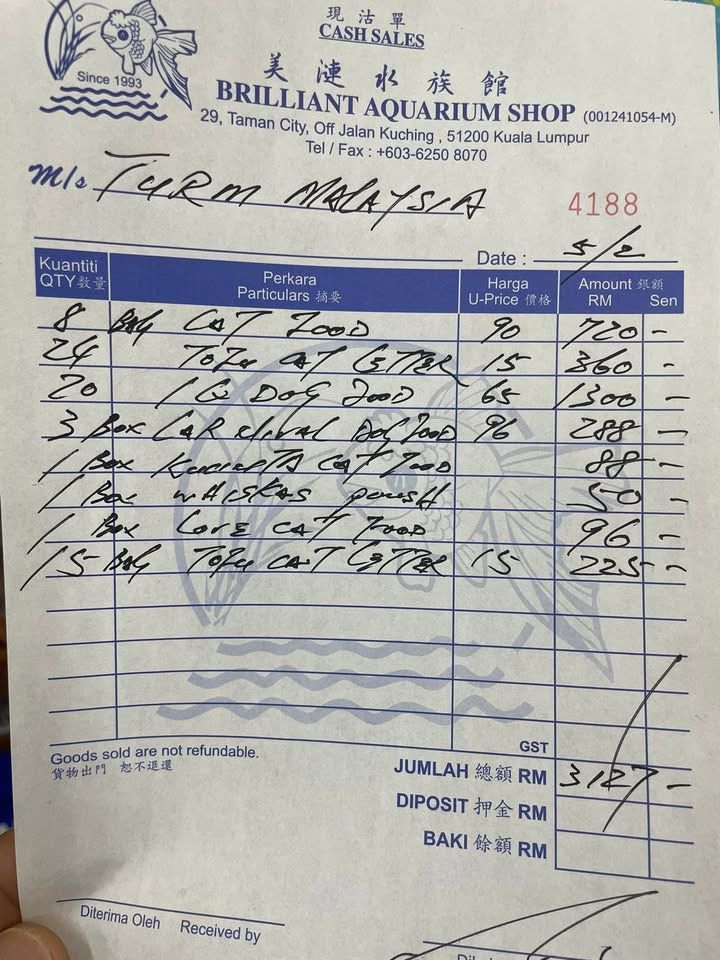 現沽單
CASH SALES
Since 1993
美漣水族館
BRILLIANT AQUARIUM SHOP (001241054-M)
29, Taman City, Off Jalan Kuching , 51200 Kuala Lumpur
Tel / Fax : +603-6250 8070
M/s TURM MALAYSIA
4188
Date : 5/2
Kuantiti QTY 數量 Perkara Particulars 摘要 Harga U-Price 價格 Amount 銀額 RM Sen
8 BAG CAT FOOD 90 720 -
24 TOFU CAT LITTER 15 360 -
20 IQ DOG FOOD 65 1300 -
3 BOX CARNIVAL DOG FOOD 96 288 -
1 BOX CAT FOOD 88 -
1 BOX WHISKAS POUSH 50 -
1 BOX LOVE CAT FOOD 96 -
15 BAG TOFU CAT LITTER 15 225 -
GST
Goods sold are not refundable.
貨物出門 恕不退還
JUMLAH 總額 RM 3127 -
DIPOSIT 押金 RM
BAKI 餘額 RM
Diterima Oleh Received by